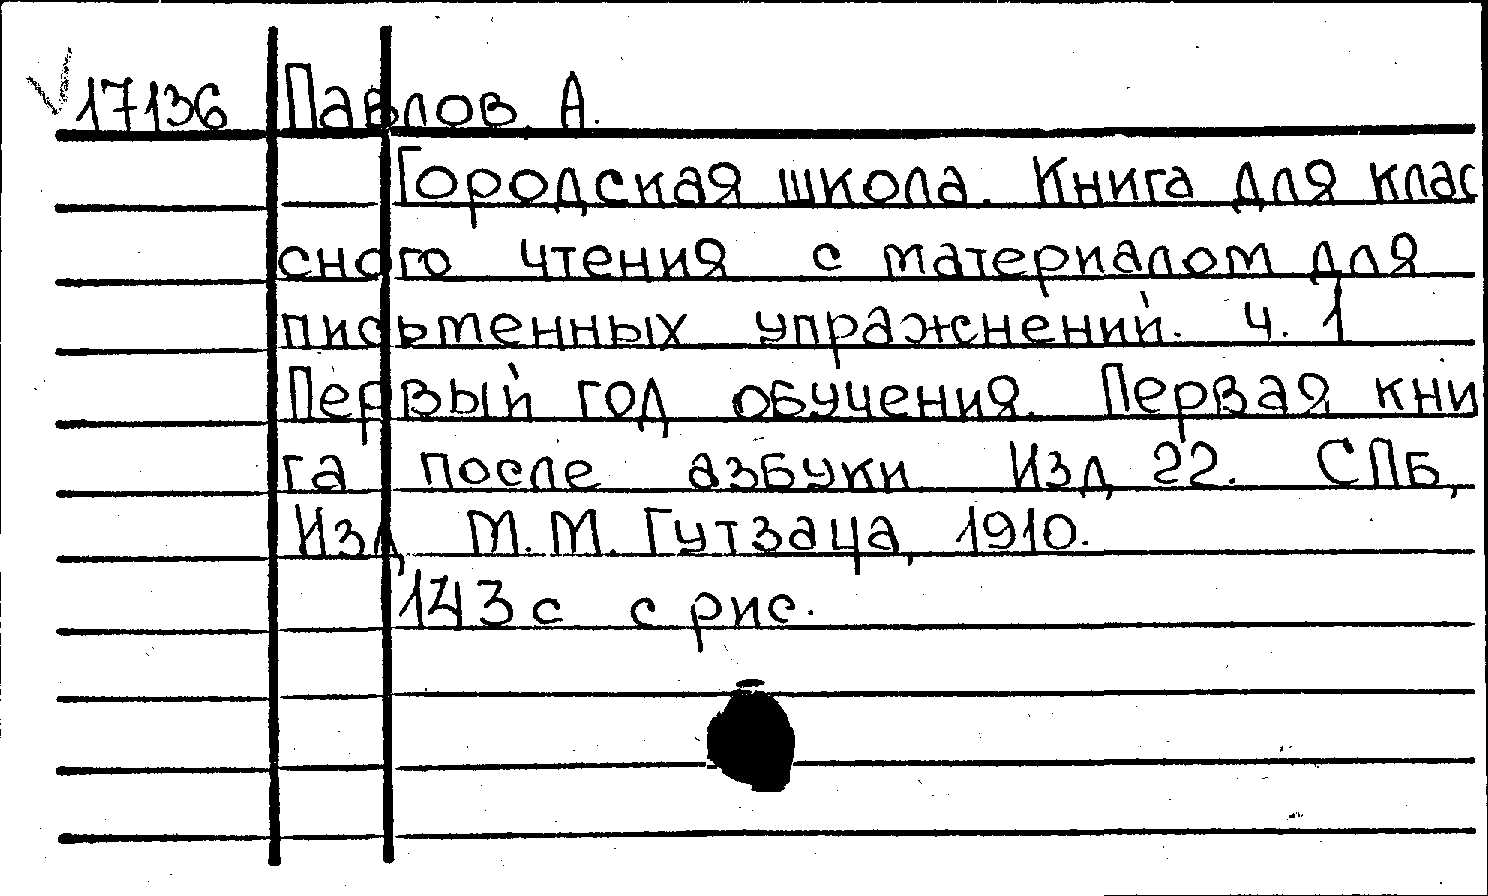 17136 Павлов А.
Городская школа. Книга для клас
сного чтения с материалом для
письменных упражнений. ч. 1
Первый год обучения. Первая кни
га после азбуки Изд 22. СПб,
Изд, М.М. Гутзаца, 1910.
143 с с рис.